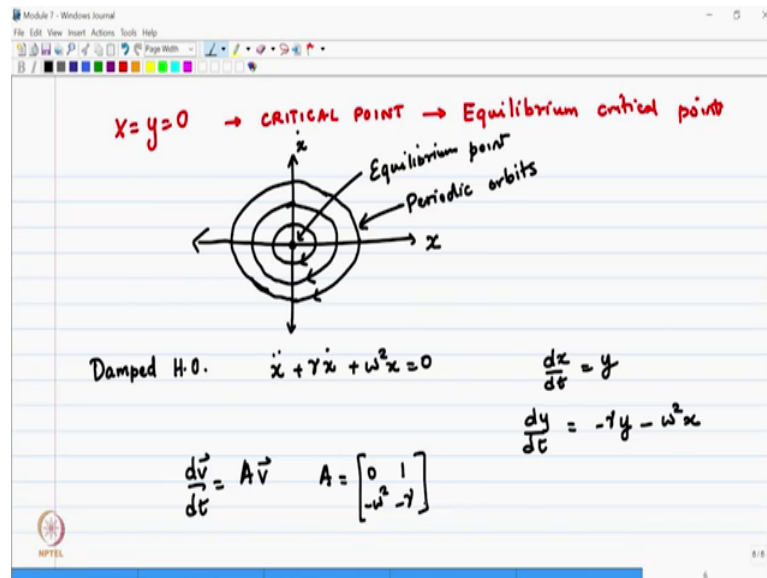 Module 7 - Windows Journal
File Edit View Insert Actions Tools Help
Page Width
B I
x = y = 0 → CRITICAL POINT → Equilibrium critical point
ẋ
Equilibrium point
Periodic orbits
x
Damped H.O. ẍ + γẋ + ω²x = 0
dx/dt = y
dy/dt = -γy - ω²x
dv⃗/dt = Av⃗ A = [0 1; -ω² -γ]
NPTEL
6/6